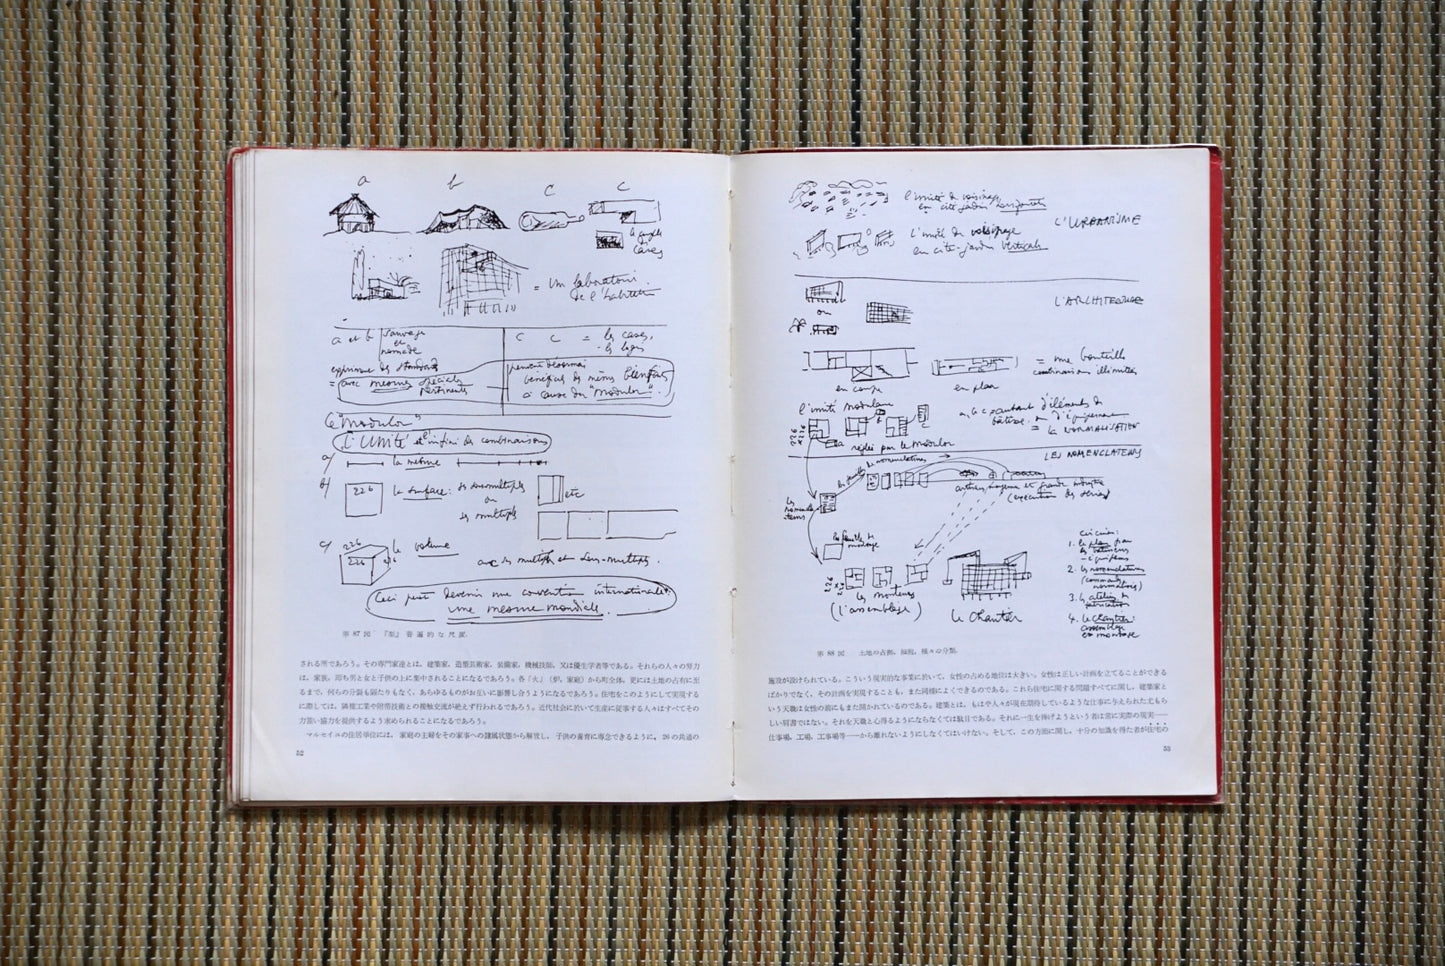 a
b
C
C
= un laboratoire
de l'habitation
a et b
sauvage
et
nomade
C C = les cases,
les loges
expriment des standards
= avec mesures spéciales
pertinents
peuvent désormais
bénéficier des mêmes bienfaits
à cause du "modulor".
le "Modulor"
l'Unité et l'infini des combinaisons
a/
la mesure
b/
226
la surface:
ou
les multiples
etc
c/
226
226
le volume
avec les multiples et sous-multiples.
Ceci peut devenir une convention internationale:
une mesure mondiale.
第 87 図 『型』普遍的な尺度.
される所であろう。その専門家達とは、建築家、造型芸術家、装備家、機械技師、又は優生学者等である。それらの人々の努力
は、家族、即ち男と女と子供の上に集中されることになるであろう。各「火」(炉、家庭)から町全体、更には土地の占有に至
るまで、何らの分裂も隔たりもなく、あらゆるものがお互いに影響し合うようになるであろう。住宅をこのようにして実現する
に際しては、隣接工業や附帯技術との接触交流が絶えず行われるであろう。近代社会に於いて生産に従事する人々はすべてその
力強い協力を提供するよう求められることになるであろう。
マルセイユの住居単位には、家庭の主婦をその家事への隷属状態から解放し、子供の養育に専念できるように、26 の共通の
52
l'unité de voisinage
en cité-jardin horizontale
l'unité de voisinage
en cité-jardin verticale
L'URBANISME
L'ARCHITECTURE
ou
en coupe
en plan
= une bouteille
combinaisons illimitées
l'unité modulaire
226
x 226
a, b, c autant d'éléments de
= la NORMALISATION
réglée par le Modulor
LES NOMENCLATEURS
(exécution des séries)
les
nomenclateurs
les feuilles de
montage
les monteurs
(l'assemblage)
le chantier
1. le plan par
2. les nomenclatures
3. les ateliers de
fabrication
4. le chantier:
assemblage
en montage
第 88 図 土地の占拠、細胞、様々の分類.
施設が設けられている。こういう現実的な事業に於いて、女性の占める地位は大きい。女性は正しい計画を立てることができる
ばかりでなく、その計画を実現することも、また同様によくできるのである。これら住宅に関する問題すべてに関し、建築家と
いう天職は女性の前にもまた開かれているのである。建築とは、もはや人々が現在期待しているような仕事に与えられた尤もら
しい肩書ではない。それを天職と心得るようにならなくては駄目である。それに一生を捧げようという者は常に実際の現実——
仕事場、工場、工事場等——から離れないようにしなくてはいけない。そして、この方面に関し、十分の知識を得た者が住宅の
53